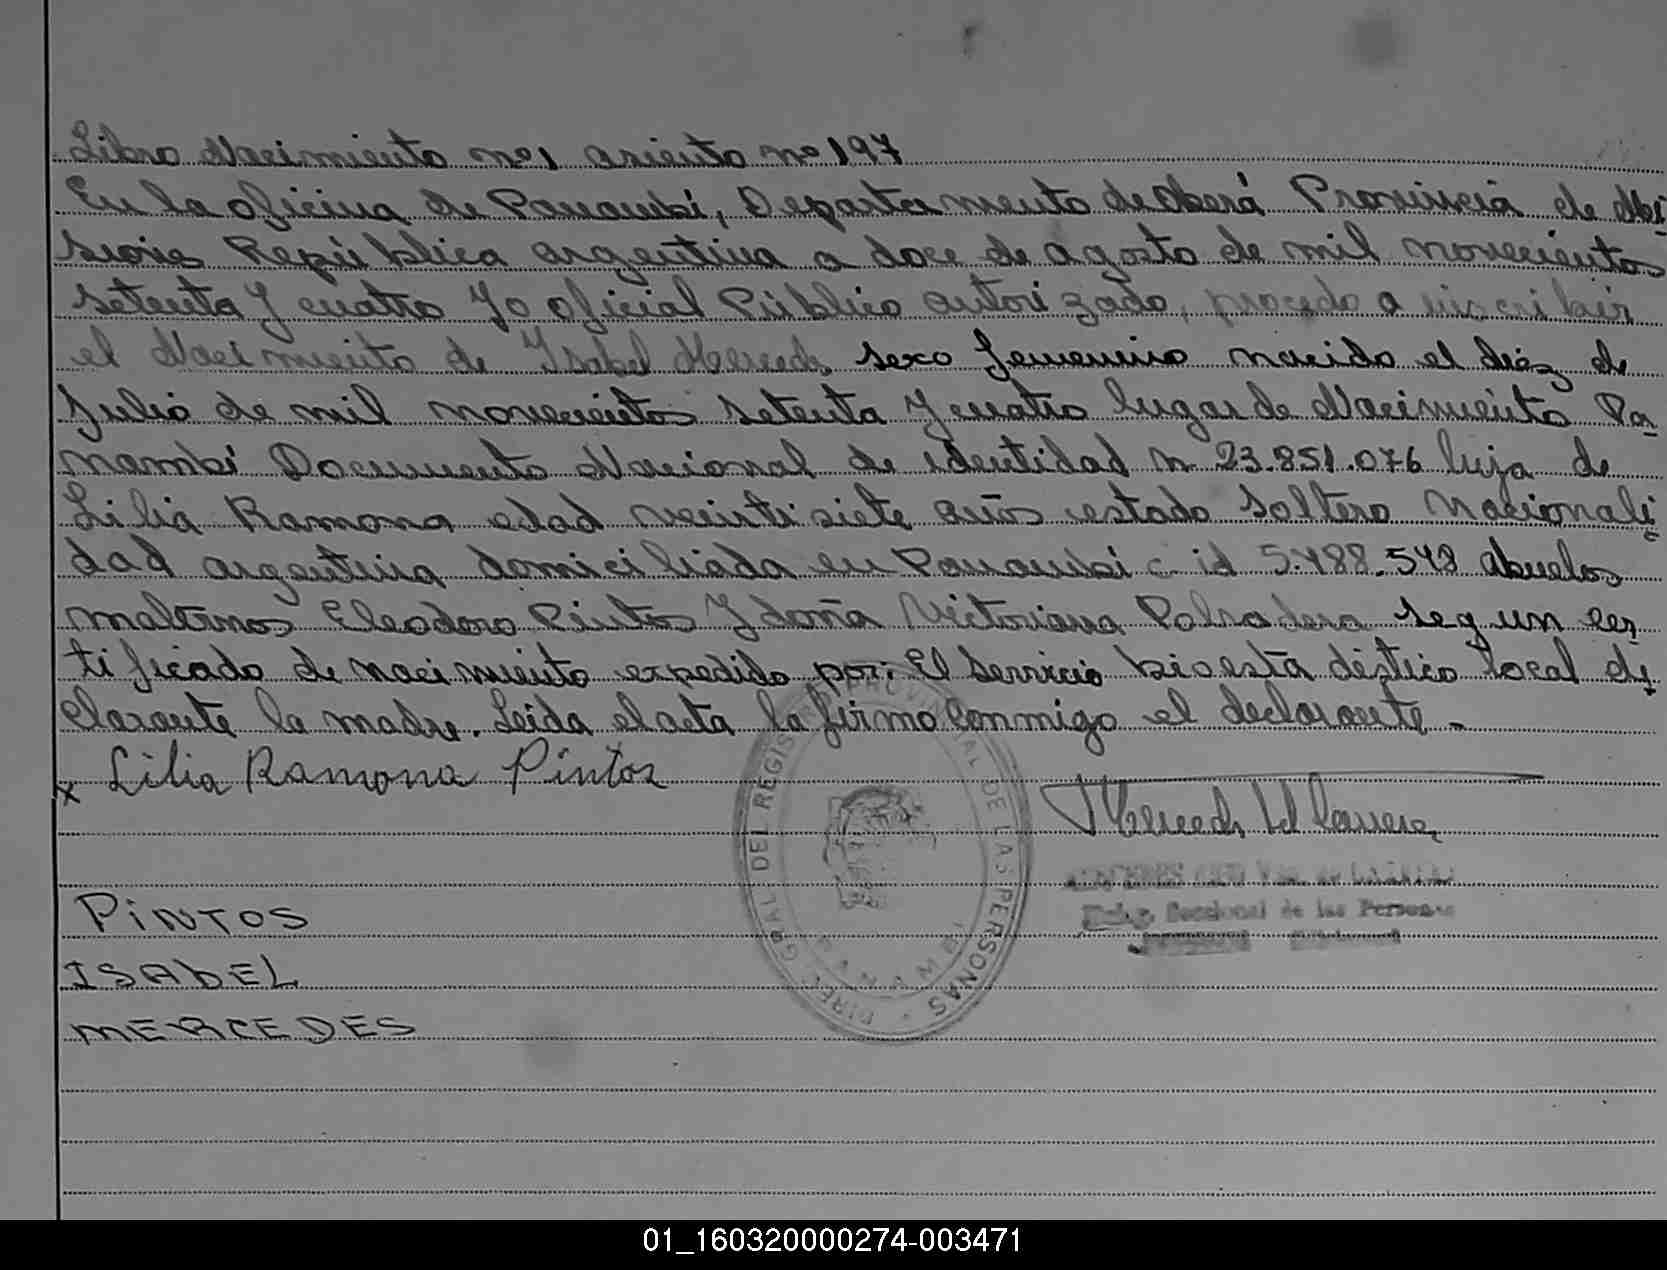 Libro Nacimiento nº 1 asiento nº 197
En la oficina de Panambi, Departamento de Oberá Provincia de Mi
siones República argentina a doce de agosto de mil novecientos
setenta y cuatro Yo oficial Público autorizado, procedo a inscribir
el Nacimiento de Isabel Mercedes sexo femenino nacido el diéz de
Julio de mil novecientos setenta y cuatro lugar de Nacimiento Pa
nambi Documento Nacional de identidad n 23.851.076 hija de
Lilia Ramona edad veintisiete años estado soltero nacionali
dad argentina domiciliada en Panambi c. id 5.488.548 abuelos
maternos Eleodoro Pintos y doña Victoriana segun cer
tificado de nacimiento expedido por: El servicio bioestadistico local de
clarante la madre. Leida el acta la firmo conmigo el declarante.-
x Lilia Ramona Pintos
DIREC. GRAL. DEL REGISTRO PROVINCIAL DE LAS PERSONAS
PANAMBI
Seccional de las Personas
PiNTOS
ISAbEL
MERCEDES
01_160320000274-003471